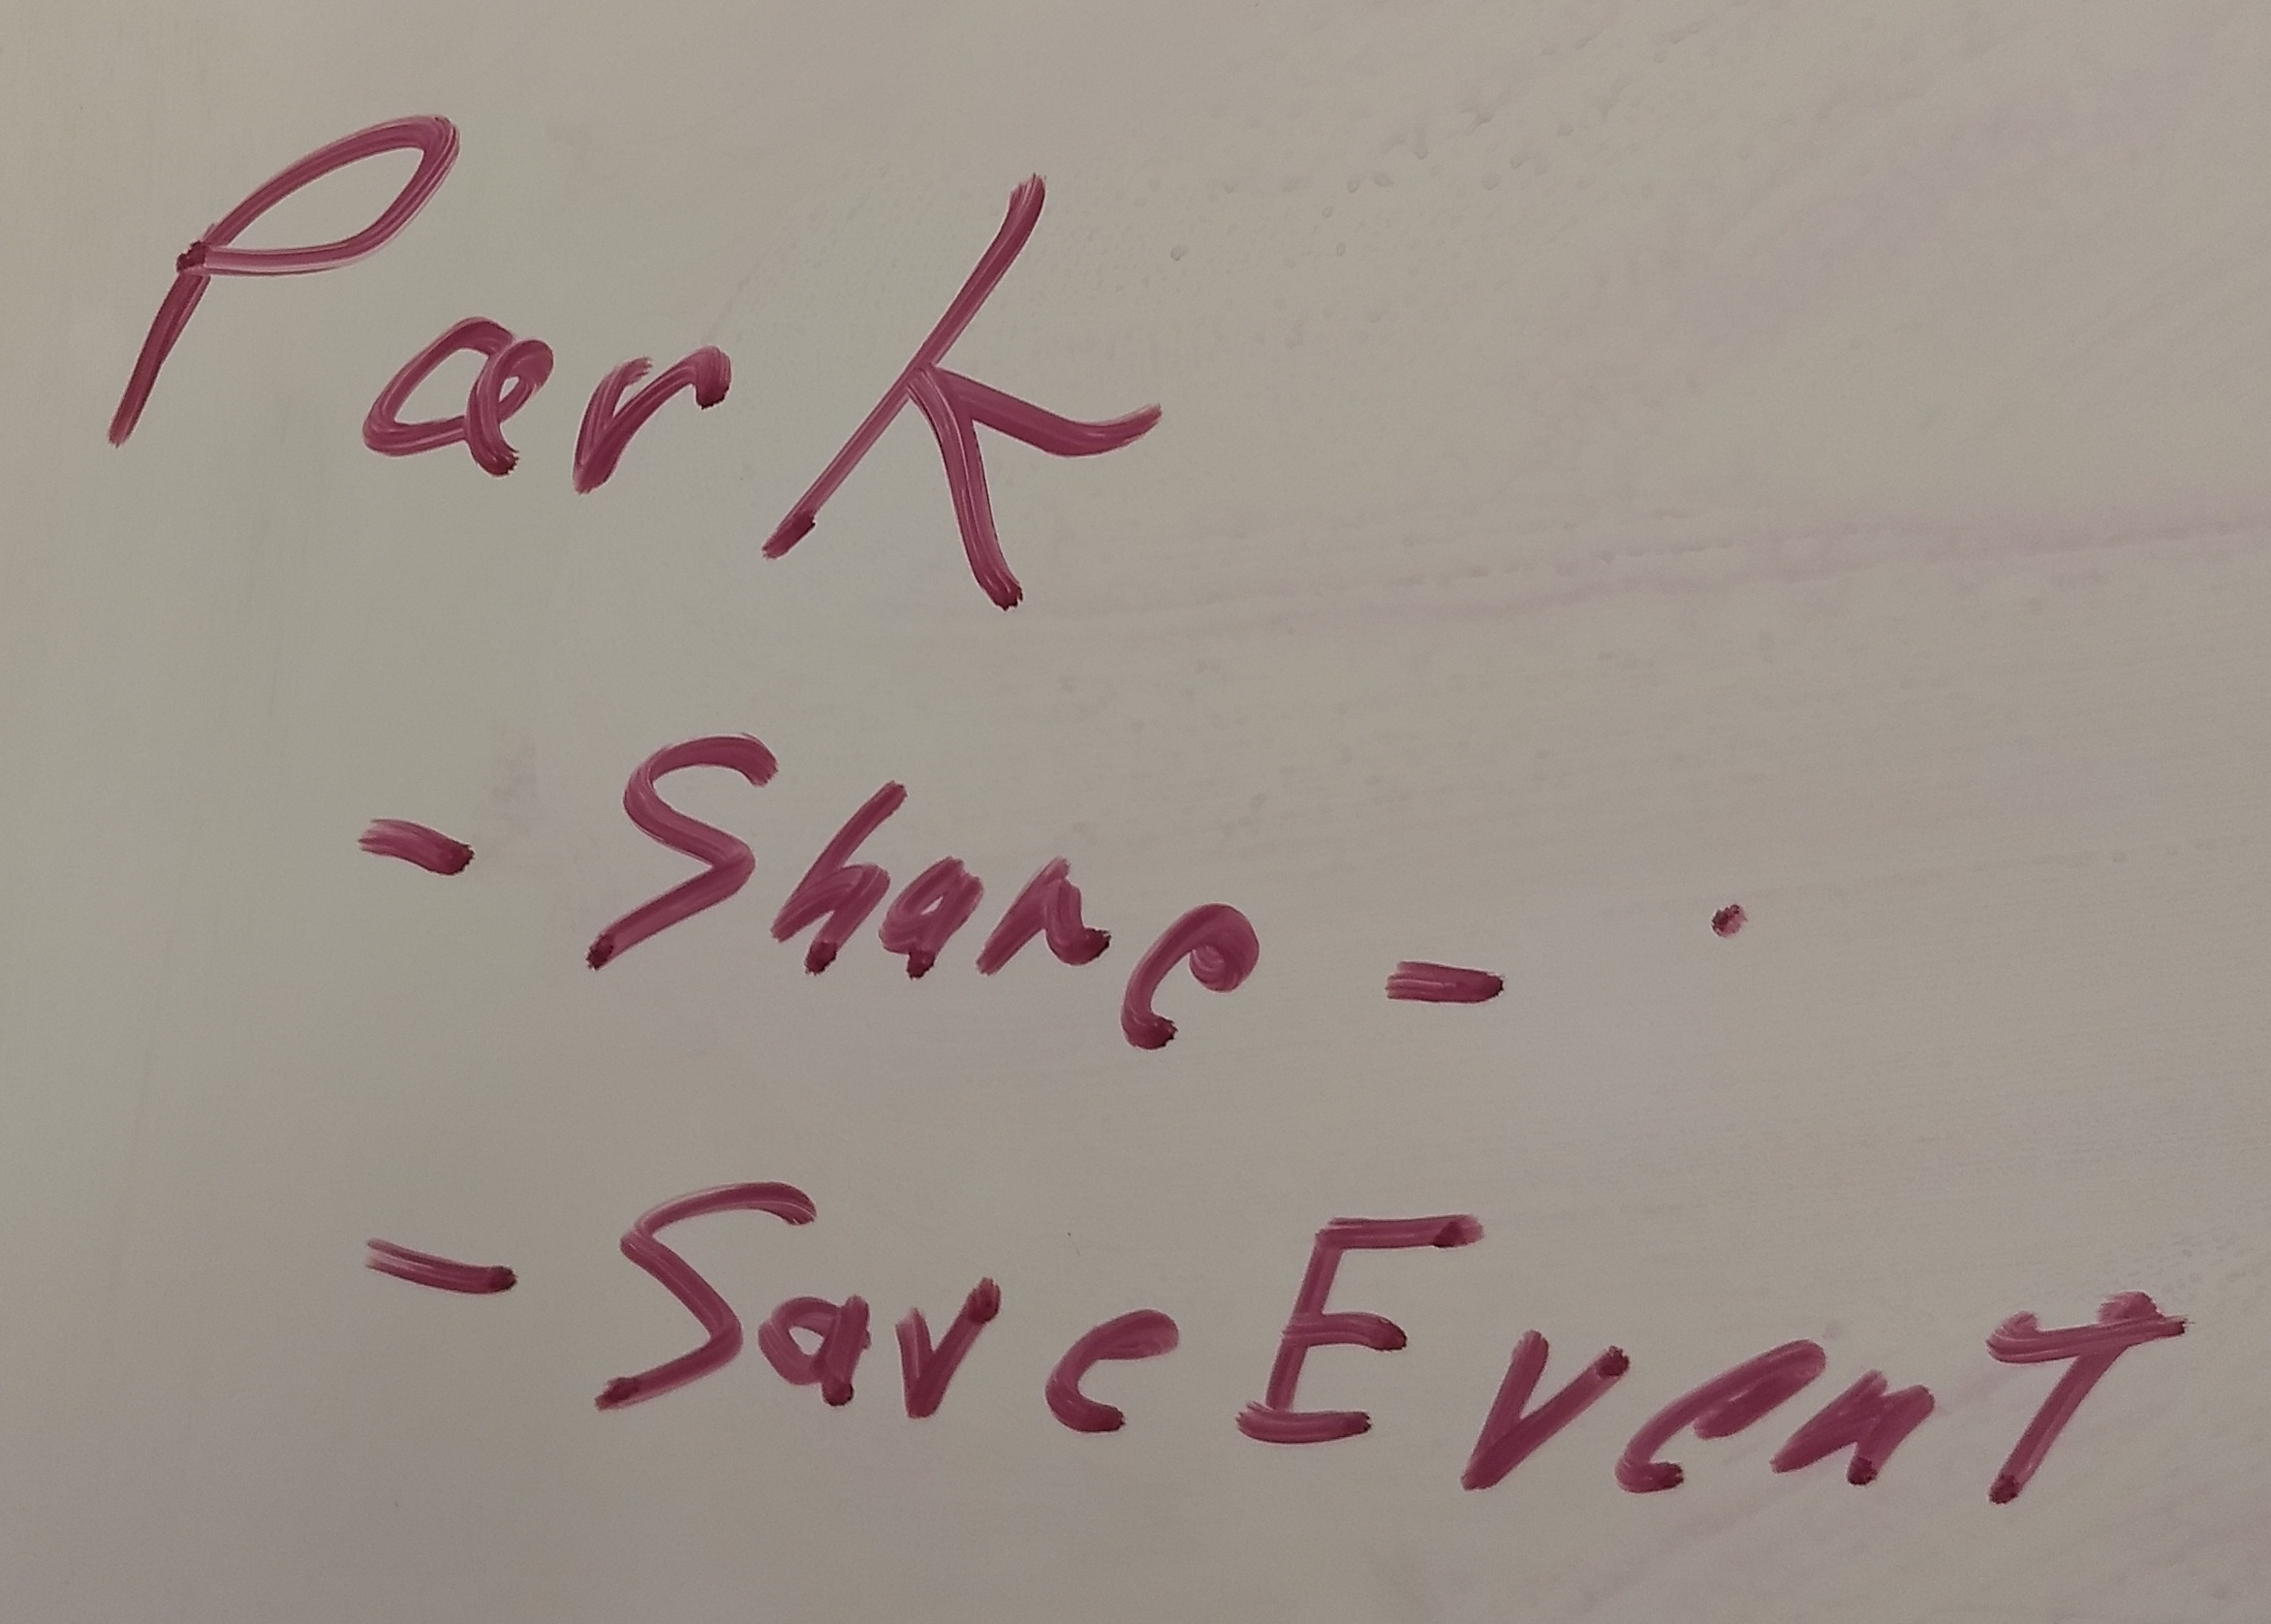 Park
- Share -
- Save Event